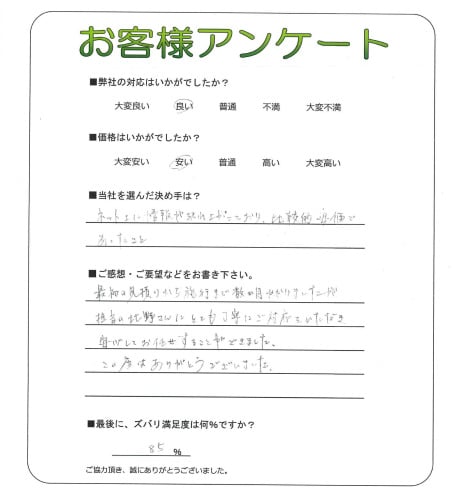 お客様アンケート
■弊社の対応はいかがでしたか?
大変良い 良い 普通 不満 大変不満
■価格はいかがでしたか?
大変安い 安い 普通 高い 大変高い
■当社を選んだ決め手は?
ネット上に情報が 比較的安価で
あったこと
■ご感想・ご要望などをお書き下さい。
最初の見積りから施行まで数か月かかりましたが
担当の北野さんにとても丁寧にご対応していただき
安心してお任せすることができました。
この度はありがとうございました。
■最後に、ズバリ満足度は何%ですか?
85 %
ご協力頂き、誠にありがとうございました。